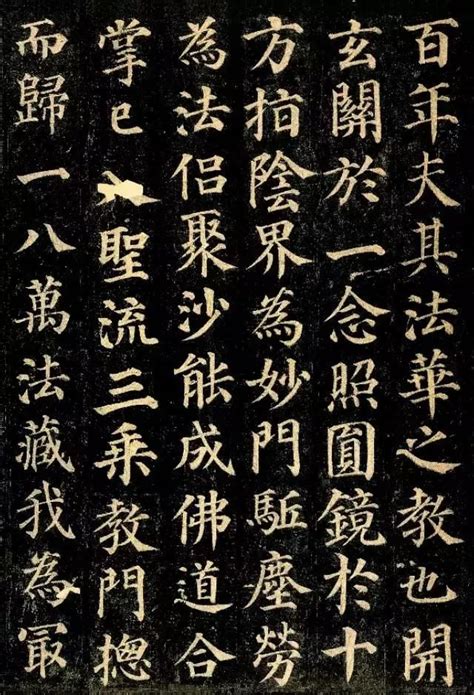 百年夫其法華之教也開
玄關於一念照圓鏡於十
方指陰界為妙門駈塵勞
為法侶聚沙能成佛道合
掌已聖流三乘教門摠
而歸一八萬法藏我為冣